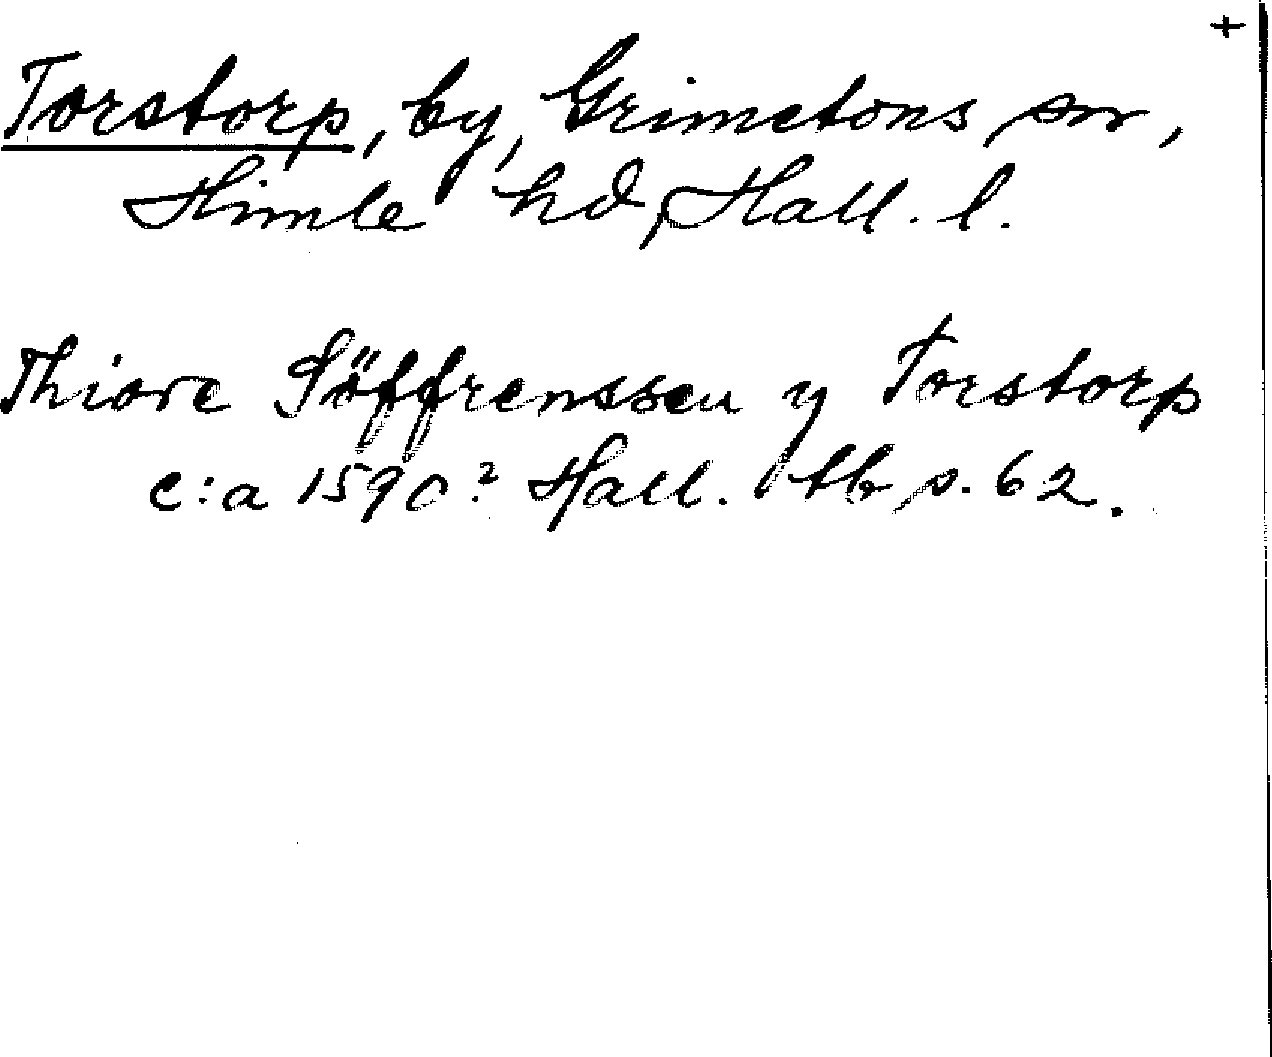 +
Torstorp, by, Grimetons sn,
Himle hd, Hall. l.
Thiore Söffrenssen y Torstorp
c:a 1590? Hall. tb p. 62.